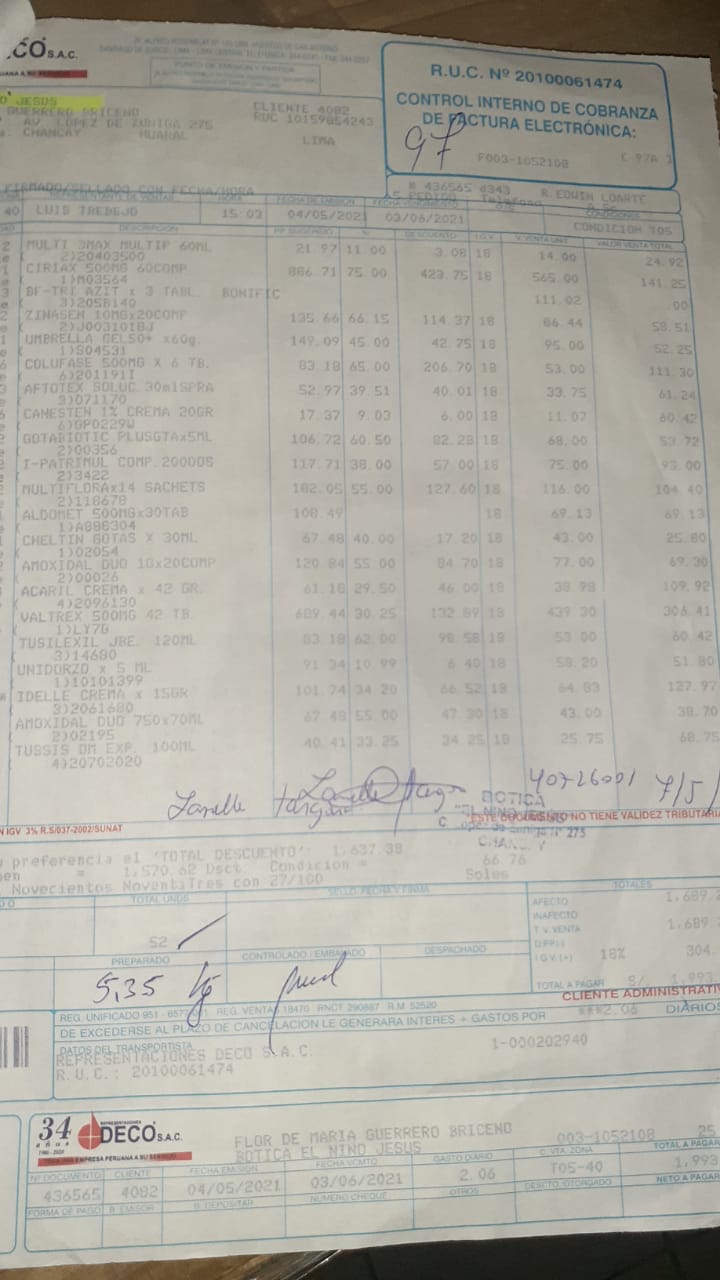 .CO S.A.C.
R.U.C. Nº 20100061474
CONTROL INTERNO DE COBRANZA
DE FACTURA ELECTRÓNICA:
97
F003-1052108
JESUS
GUERRERO BRICENO
AV. LOPEZ DE ZUNIGA 275
CHANCAY HUARAL
CLIENTE 4082
RUC 10159854243
LIMA
FIRMADO/SELLADO CON FECHA/HORA
# 436565 d343 R. EDWIN LOARTE
CONDICION T05
40 LUIS TREBEJO 15:03 04/05/2021 03/06/2021
DESCRIPCIÓN DESCUENTO I.G.V. V.VENTA UNIT. VALOR VENTA TOTAL
MULTI 3MAX MULTIP 60ML 21.97 11.00 3.08 18 14.00 24.92
2)20403500
CIRIAX 500MG 60COMP 886.71 75.00 423.75 18 565.00 141.25
1)M03564
BF-TRI AZIT x 3 TABL. BONIFIC 111.02 .00
3)205B140
ZINASEN 10MGx20COMP 135.66 66.15 114.37 18 86.44 58.51
2)J003101BJ
UMBRELLA GEL50+ x60g. 149.09 45.00 42.75 18 95.00 52.25
1)S04531
COLUFASE 500MG X 6 TB. 83.18 65.00 206.70 18 53.00 111.30
6)201191I
AFTOTEX SOLUC 30mlSPRA 52.97 39.51 40.01 18 33.75 61.24
3)071170
CANESTEN 1% CREMA 20GR 17.37 9.03 6.00 18 11.07 60.42
6)GP0229W
GOTABIOTIC PLUSGTAx5ML 106.72 60.50 82.28 18 68.00 53.72
2)00356
I-PATRIMUL COMP.2000DS 117.71 38.00 57.00 18 75.00 93.00
2)3422
MULTIFLORAx14 SACHETS 182.05 55.00 127.60 18 116.00 104.40
2)118678
ALDOMET 500MGx30TAB 108.49 18 69.13 69.13
1)A888304
CHELTIN GOTAS X 30ML 67.48 40.00 17.20 18 43.00 25.80
1)02054
AMOXIDAL DUO 1Gx20COMP 120.84 55.00 84.70 18 77.00 69.30
2)00026
ACARIL CREMA x 42 GR. 61.18 29.50 46.00 18 38.98 109.92
4)2096130
VALTREX 500MG 42 TB. 689.44 30.25 132.89 18 439.30 306.41
1)LY7G
TUSILEXIL JBE. 120ML 83.18 62.00 98.58 18 53.00 60.42
3)14680
UNIDORZO x 5 ML 91.34 10.99 6.40 18 58.20 51.80
1)10101399
IDELLE CREMA x 15GR 101.74 34.20 66.52 18 64.83 127.97
3)2061680
AMOXIDAL DUO 750x70ML 67.48 55.00 47.30 18 43.00 38.70
2)02195
TUSSIS DM EXP. 100ML 40.41 33.25 34.25 18 25.75 68.75
4)20702020
40726001 7/5/
BOTICA
IGV 3% R.S/037-2002/SUNAT
ESTE DOCUMENTO NO TIENE VALIDEZ TRIBUTARIA
preferencia el 'TOTAL DESCUENTO': 1,637.38
= 1,570.62 Dsct. Condicion = 66.76
Novecientos NoventiTres con 27/100 Soles
TOTAL UNDS SELLO, FECHA Y FIRMA TOTALES
52
AFECTO 1,689.2
INAFECTO
T.V. VENTA 1,689.
I.G.V. (+) 18% 304.
TOTAL A PAGAR S/ 1,993
PREPARADO CONTROLADO / EMBALADO DESPACHADO
5,35 kg
CLIENTE ADMINISTRATIV
REG. VENTAS 18470 RNCT 290887 R.M 52520
DE EXCEDERSE AL PLAZO DE CANCELACION LE GENERARA INTERES + GASTOS POR ***2.06 DIARIOS
DATOS DEL TRANSPORTISTA
REPRESENTACIONES DECO S.A.C.
R.U.C.: 20100061474
1-000202940
34 años
REPRESENTACIONES
DECO S.A.C.
EMPRESA PERUANA A SU SERVICIO
FLOR DE MARIA GUERRERO BRICENO
BOTICA EL NINO JESUS
003-1052108 25
Nº DOCUMENTO CLIENTE FECHA EMISIÓN FECHA VCMTO GASTO DIARIO C. VTA. ZONA TOTAL A PAGAR
436565 4082 04/05/2021 03/06/2021 2.06 T05-40 1,993
FORMA DE PAGO B. EMISOR B. DEPOSITAR NUMERO CHEQUE OTROS DESCTO. OTORGADO NETO A PAGAR